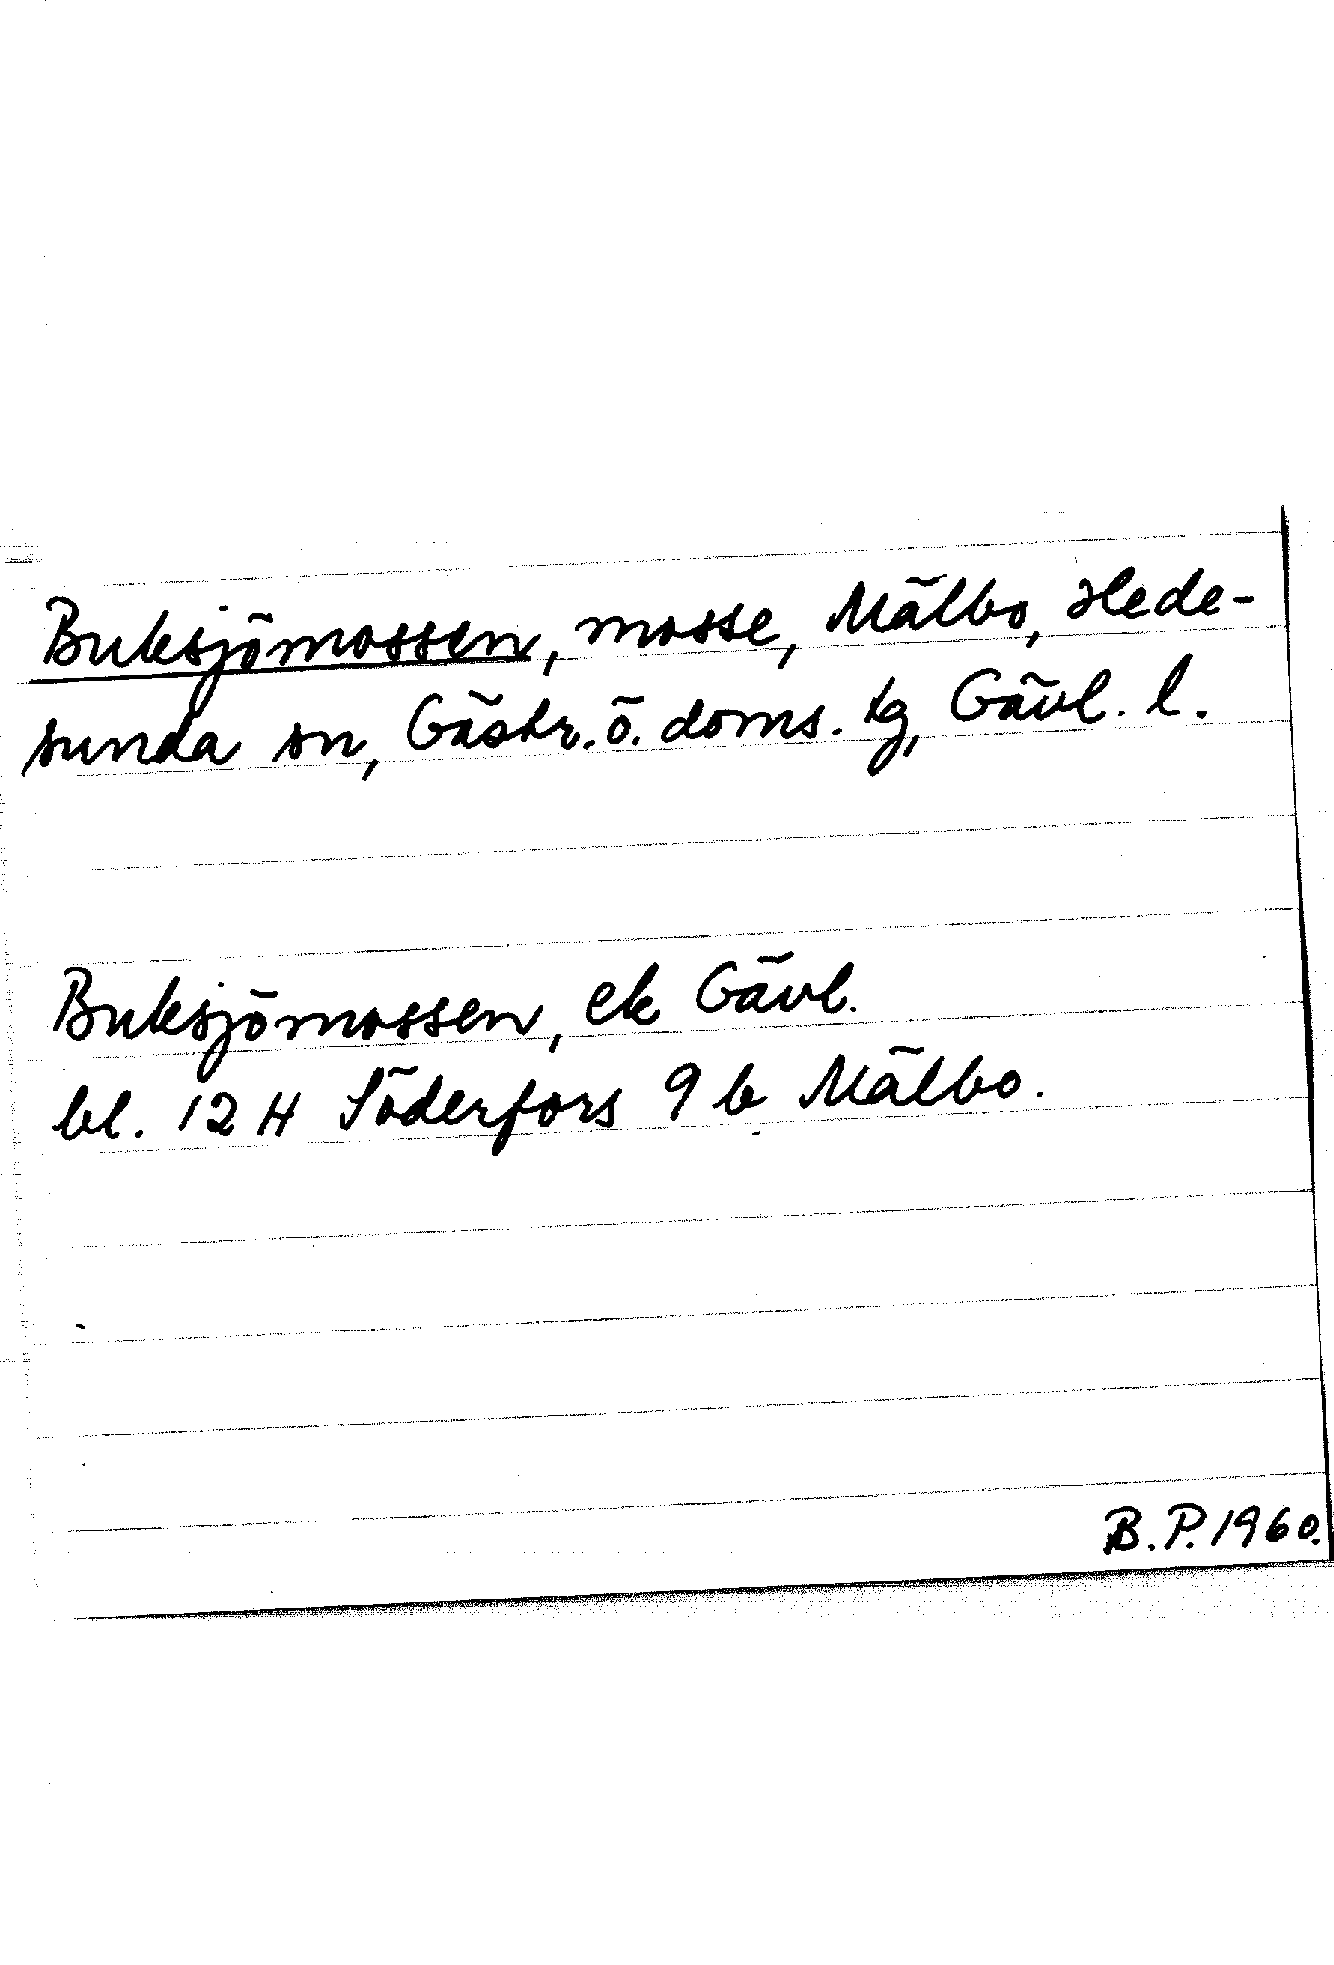 Buksjömossen, mosse, Mälbo, Hede-
sunda sn, Gästr. ö. doms. tg, Gävl. l.
Buksjömossen, ek Gävl.
bl. 12 H Söderfors 9 b Mälbo.
B.P. 1960.